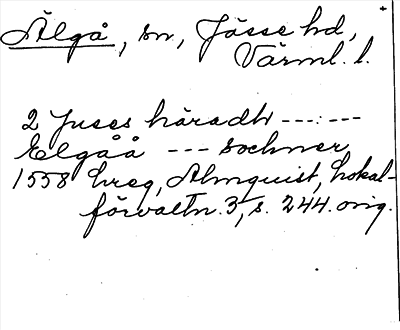 Älgå, sn, Jösse hd,
Värml. l.
2 Juses häradh ---:---
Elgåå --- sochner
1558 hreg, Almquist, Lokal-
förvaltn. 3, s. 244. orig.